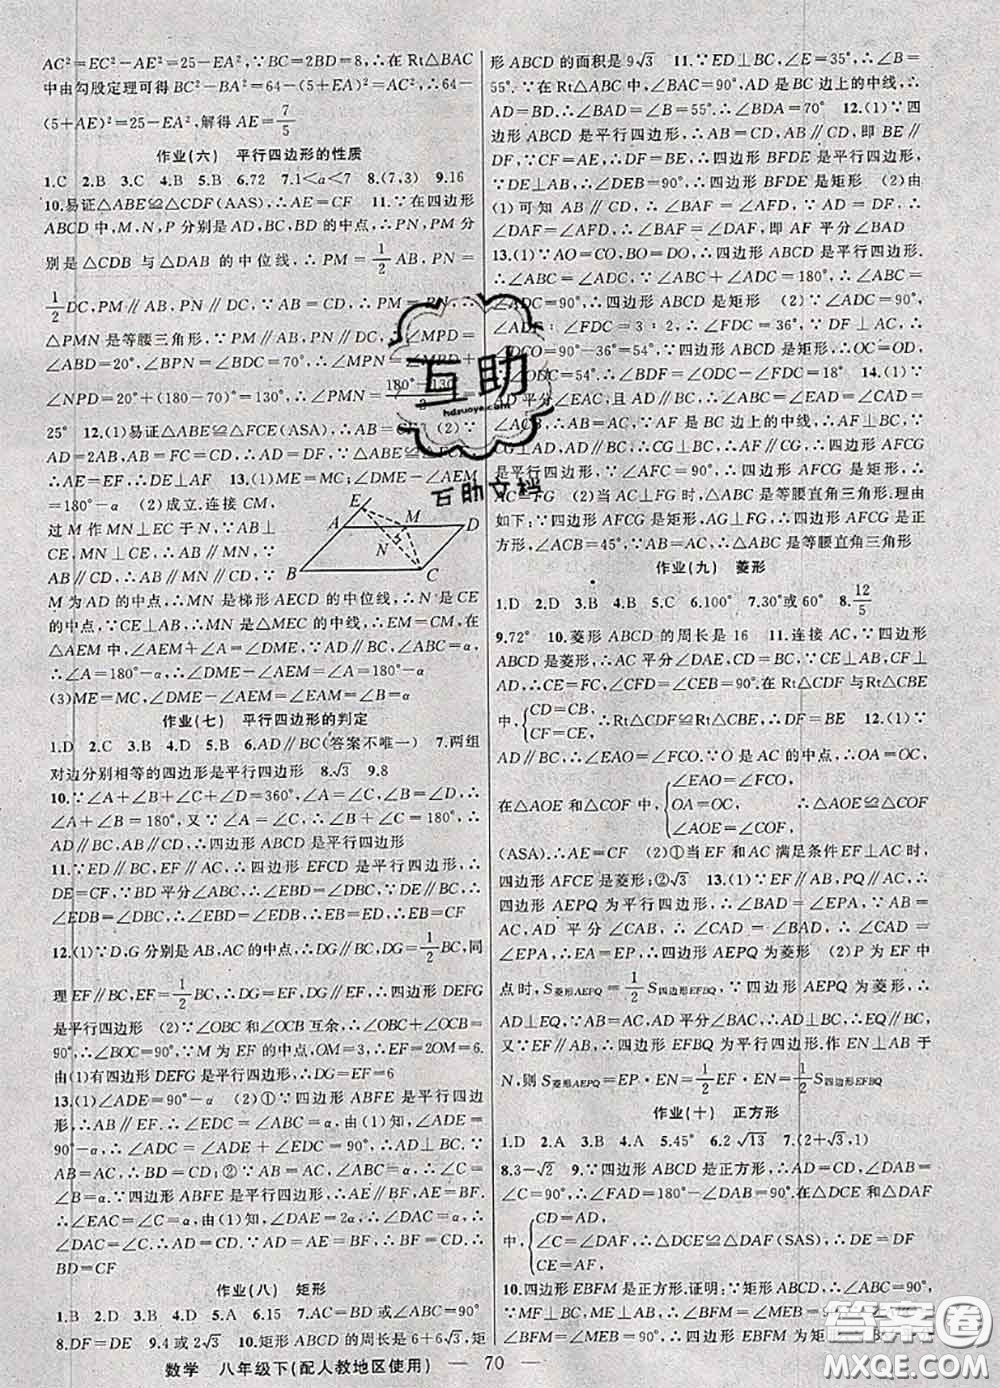 AC²=EC²-AE²=25-EA²,∵BC=2BD=8,∴在Rt△BAC
中由勾股定理可得BC²-BA²=64-(5+AE)²=AC²,∴64-
(5+AE)²=25-EA²,解得AE=7/5
作业(六) 平行四边形的性质
1.C 2.B 3.C 4.B 5.B 6.72 7.1<a<7 8.(7,3) 9.16
10.易证△ABE≌△CDF(AAS),∴AE=CF 11.∵在四边形
ABCD中,M、N、P分别是AD,BC,BD的中点,∴PN,PM分
别是△CDB与△DAB的中位线,∴PM=1/2AB,PN=
1/2DC,PM∥AB,PN∥DC,∵AB=CD,∴PM=PN,∴
△PMN是等腰三角形,∵PM∥AB,PN∥DC,∴∠MPD=
∠ABD=20°,∠BPN=∠BDC=70°,∴∠MPN=∠MPD+
∠NPD=20°+(180-70)°=130°,∴∠PMN=(180°-130°)/2=
25° 12.(1)易证△ABE≌△FCE(ASA),∴AB=CF (2)∵
AD=2AB,AB=FC=CD,∴AD=DF,∵△ABE≌△FCE,
∴AE=EF,∴DE⊥AF 13.(1)ME=MC;∠DME-∠AEM
=180°-α (2)成立.连接CM,
过M作MN⊥EC于N,∵AB
⊥CE,MN⊥CE,∴AB∥MN,
∵AB∥CD,∴AB∥MN∥CD,∵
M为AD的中点,∴MN是梯形AECD的中位线,∴N是CE
的中点,∵CE⊥AB,∴MN是△MEC的中线,∴ME=CM,在
△AEM中,∠DME-∠AEM=∠A,∵AD∥BC,∠B=α,
∴∠A=180°-α,∴∠DME-∠AEM=∠A=180°-α
(3)ME=MC,∠DME-∠AEM=∠AEM=180°-α
作业(七) 平行四边形的判定
1.D 2.C 3.B 4.D 5.B 6.AD∥BC(答案不唯一) 7.两组
对边分别相等的四边形是平行四边形 8.√3 9.8
10.∵∠A+∠B+∠C+∠D=360°,∠A=∠C,∠B=∠D,∴
∠A+∠B=180°,又∵∠A=∠C,∴∠B+∠C=180°,∴
AD∥BC,AB∥CD,∴四边形ABCD是平行四边形
11.∵ED∥BC,EF∥AC,∴四边形EFCD是平行四边形,∴
DE=CF,∵BD平分∠ABC,∴∠EBD=∠DBC,∵DE∥BC,
∴∠EDB=∠DBC,∴∠EBD=∠EDB,∴EB=ED,∴EB=CF
12.(1)∵D,G分别是AB,AC的中点,∴DG∥BC,DG=1/2BC,同
理EF∥BC,EF=1/2BC,∴DG=EF,DG∥EF,∴四边形DEFG
是平行四边形 (2)∵∠OBC和∠OCB互余,∴∠OBC+∠OCB=
90°,∴∠BOC=90°,∵M为EF的中点,OM=3,∴EF=2OM=6.
由(1)有四边形DEFG是平行四边形,∴DG=EF=6
13.(1)∠ADE=90°-α (2)①∵四边形ABFE是平行四边
形,∴AB∥EF,∴∠EFC=∠ABC=α,由(1)知,∠ADE=
90°-α,∴∠ADC=∠ADE+∠EDC=90°,∴AD⊥BC,∵
AB=AC,∴BD=CD;②∵AB=AC,∠ABC=α,∴∠C=
∠B=α.∵四边形ABFE是平行四边形,∴AE∥BF,AE=BF,∴
∠EAC=∠C=α,由(1)知,∠DAE=2α,∴∠DAC=α,∴
∠DAC=∠C,∴AD=CD,∵AD=AE=BF,∴BF=CD,∴
BD=CF
作业(八) 矩形
1.B 2.D 3.B 4.D 5.A 6.15 7.AC=BD或∠ABC=90°
8.DF=DE 9.4或2√3 10.矩形ABCD的周长是6+6√3,矩
形ABCD的面积是9√3 11.∵ED⊥BC,∠E=35°,∴∠B=
55°.在Rt△ABC中,∠BAC=90°,AD是BC边上的中线,∴
AD=BD=DF,∴∠BAD=∠B=55°,∴∠BDA=70° 12.(1)∵四
边形ABCD是平行四边形,∴AB∥CD,即BE∥
DF,∵CF=AE,∴DF=BE,∴四边形BFDE是平行四边形,
∵DE⊥AB,∴∠DEB=90°,∴四边形BFDE是矩形 (2)由
(1)可知AB∥CD,∴∠BAF=∠AFD,∵AD=DF,∴
∠DAF=∠AFD,∴∠BAF=∠DAF,即AF平分∠BAD
13.(1)∵AO=CO,BO=DO,∴四边形ABCD是平行四边形,
∴∠ABC=∠ADC,∵∠ABC+∠ADC=180°,∴∠ABC=
∠ADC=90°,∴四边形ABCD是矩形 (2)∵∠ADC=90°,
∠ADF:∠FDC=3:2,∴∠FDC=36°,∵DF⊥AC,∴
∠DCO=90°-36°=54°,∵四边形ABCD是矩形,∴OC=OD,
∴∠ODC=54°,∴∠BDF=∠ODC-∠FDC=18° 14.(1)∵
AD平分∠EAC,且AD∥BC,∴∠ABC=∠EAD=∠CAD=
∠ACB,∴AB=AC.∵AF是BC边上的中线,∴AF⊥BC,∵
CG⊥AD,AD∥BC,∴CG⊥BC,∴AF∥CG,∴四边形AFCG是
平行四边形,∵∠AFC=90°,∴四边形AFCG是矩形,∴
AC=FG (2)当AC⊥FG时,△ABC是等腰直角三角形.理由
如下:∵四边形AFCG是矩形,AC⊥FG,∴四边形AFCG是正
方形,∴∠ACB=45°,∵AB=AC,∴△ABC是等腰直角三角形
作业(九) 菱形
1.D 2.D 3.B 4.B 5.C 6.100° 7.30°或60° 8.12/5
9.72° 10.菱形ABCD的周长是16 11.连接AC,∵四边形
ABCD是菱形,∴AC平分∠DAE,CD=BC,∵CE⊥AB,CF⊥AD,
∴CE=FC,∠CFD=∠CEB=90°.在Rt△CDF与Rt△CBE
中,{CD=CB,CF=CE,∴Rt△CDF≌Rt△CBE,∴DF=BE 12.(1)∵
AE∥CF,∴∠EAO=∠FCO,∵O是AC的中点,∴OA=OC,
在△AOE和△COF中,{∠EAO=∠FCO,OA=OC,∠AOE=∠COF,∴△AOE≌△COF
(ASA).∴AE=CF (2)①当EF和AC满足条件EF⊥AC时,
四边形AFCE是菱形;②√3 13.(1)∵EF∥AB,PQ∥AC,
∴四边形AEPQ为平行四边形,∴∠BAD=∠EPA,∵AB=
AC,AD平分∠CAB,∴∠CAD=∠BAD,∴∠CAD=
∠EPA,∴EA=EP,∴四边形AEPQ为菱形 (2)P为EF中
点时,S菱形AEPQ=1/2S四边形EFBQ,∵四边形AEPQ为菱形,∴
AD⊥EQ,∵AB=AC,AD平分∠BAC,∴AD⊥BC,∴EQ∥BC,
又∵EF∥AB,∴四边形EFBQ为平行四边形.作EN⊥AB于
N,则S菱形AEPQ=EP·EN=1/2EF·EN=1/2S四边形EFBQ
作业(十) 正方形
1.D 2.A 3.B 4.A 5.45° 6.2√13 7.(2+√3,1)
8.3-√2 9.∵四边形ABCD是正方形,∴CD=AD,∠DCE=
90°,∴∠FAD=180°-∠DAB=90°.在△DCE和△DAF
中,{CD=AD,∠C=∠DAF,CE=AF,∴△DCE≌△DAF(SAS),∴DE=DF
10.四边形EBFM是正方形.证明:∵矩形ABCD,∴∠ABC=90°,
∵MF⊥BC,ME⊥AB,∴∠BFM=90°,∠BEM=90°,∴∠ABC=
∠BFM=∠BEM=90°,∴四边形EBFM为矩形,
数学 八年级下(配人教地区使用) — 70 —
互助
hdzuoye.com
互助文档
A
B
C
D
E
M
N
答案圈
MXQE.COM